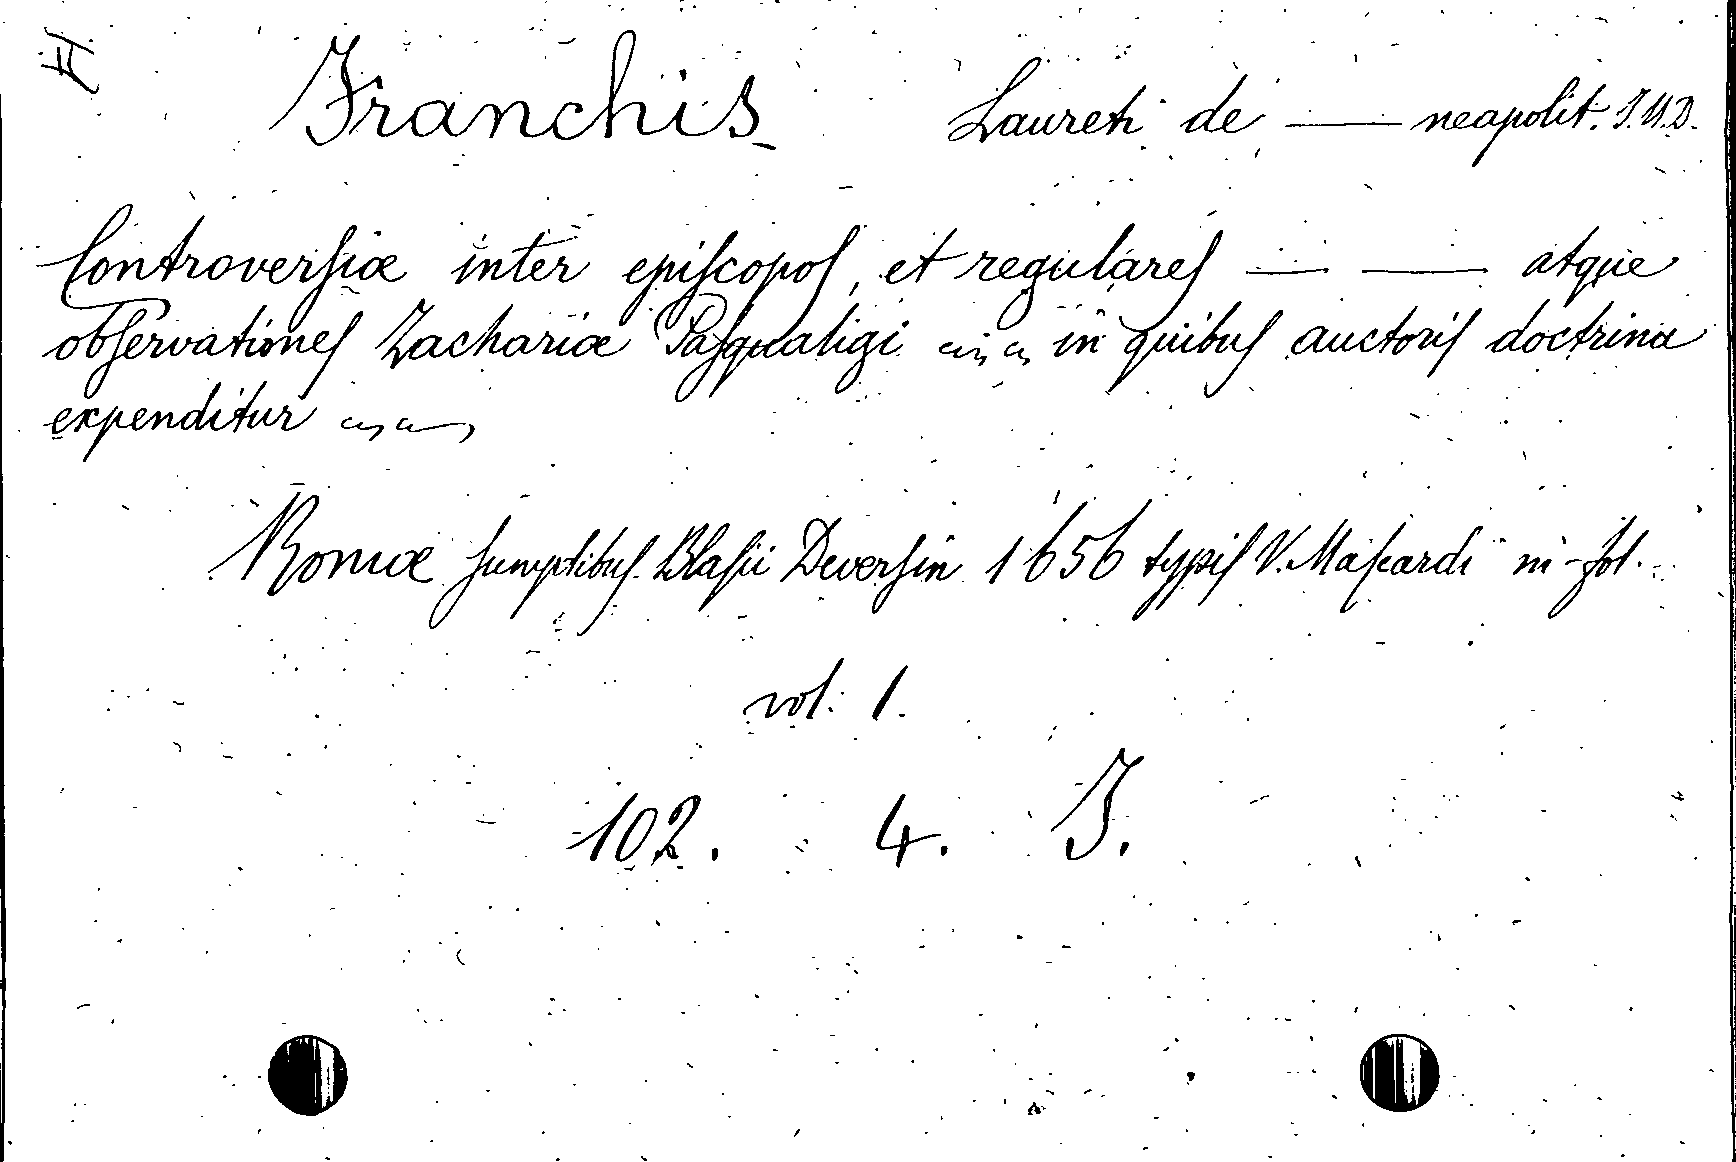 H
Franchis Laureti de — neapolit. J.U.D.
Controversiæ inter episcopos, et regulares — — atque
observationes Zachariæ Pasqualigi in quibus auctoris doctrina
expenditur
Romæ sumptibus Blasii Deversin 1656 typis V. Mascardi in-fol.
vol. 1.
102. 4. J.